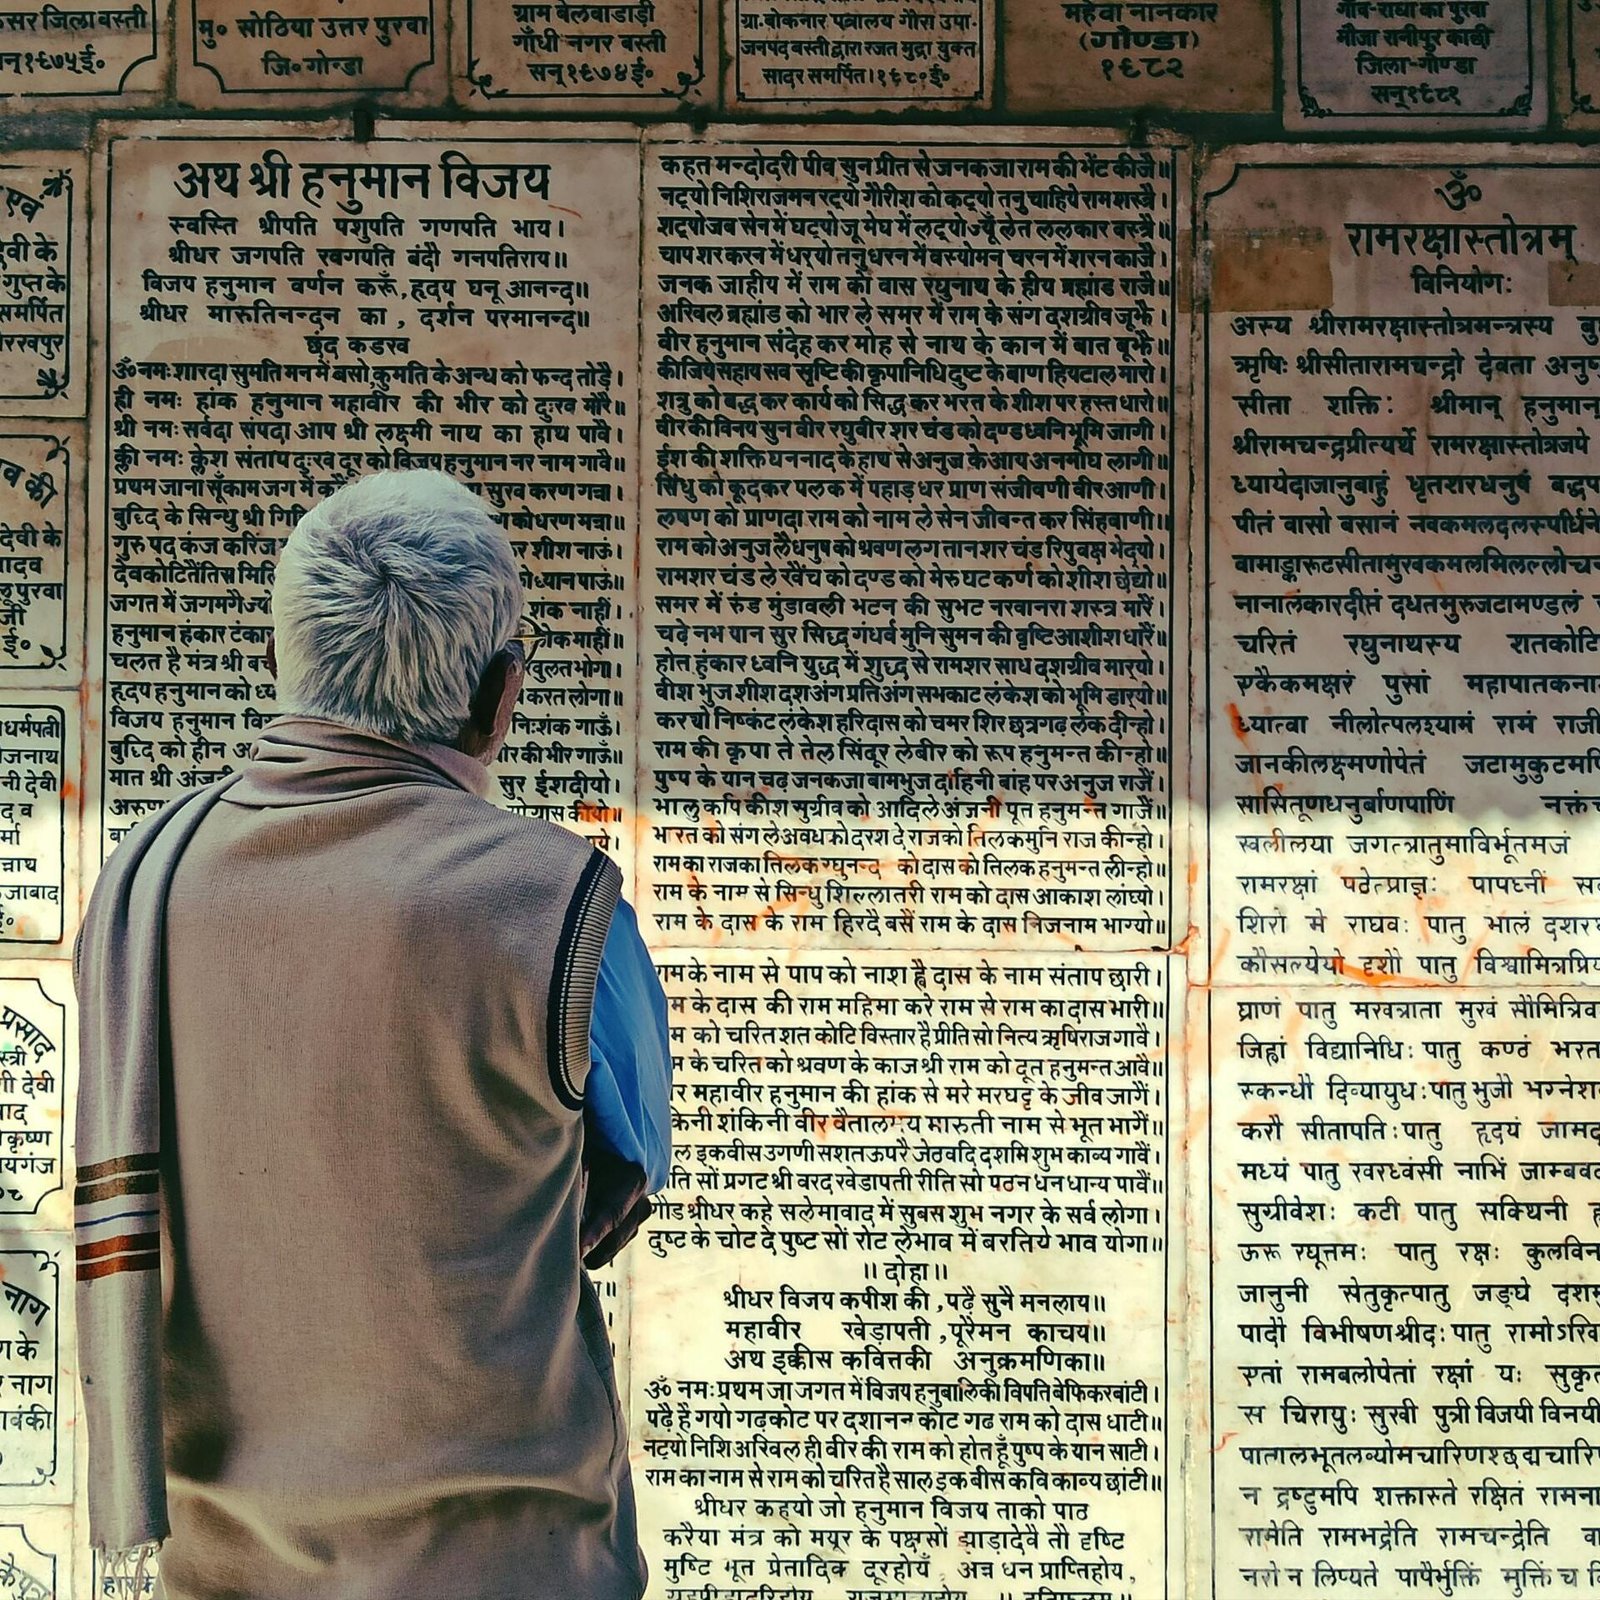 सर जिला बस्ती
न्१९७५ई॰
मु॰ सोठिया उत्तर पुरवा
जि॰ गोन्डा
ग्राम बेलवाडाड़ी
गाँधी नगर बस्ती
सन्१९७४ई॰
जनपद बस्ती द्वारा रजत मुद्रा युक्त
सादर समर्पित।१९८०ई॰
महेवा नानकार
(गोण्डा)
१९८२
जिला-गोण्डा
सन्१९८१
एवं
देवी के
गुप्त के
समर्पित
ोरखपुर
व की
देवी के
ादव
पुरवा
जी
ई॰
धर्मपत्नी
जनाथ
नी देवी
द व
र्मा
न्नाथ
जाबाद
प्रसाद
स्त्री
गी देवी
साद
कृष्ण
यगंज
नाग
ा के
र नाग
ाबंकी
अथ श्री हनुमान विजय
स्वस्ति श्रीपति पशुपति गणपति भाय।
श्रीधर जगपति खगपति बंदौ गनपतिराय॥
विजय हनुमान वर्णन करूँ,हृदय घनू आनन्द॥
श्रीधर मारुतिनन्दन का, दर्शन परमानन्द॥
छंद कडखा
ॐनमःशारदा सुमति मन में बसो,कुमति के अन्ध को फन्द तोड़ै।
ह्री नमः हांक हनुमान महावीर की भीर को दुःख मोरै॥
श्री नमः सर्वदा संपदा आप श्री लक्ष्मी नाथ का हाथ पावै।
क्ली नमः क्लेश संताप दुःख दूर को विजय हनुमान नर नाम गावै।
प्रथम जाना सूँकाम जग में सुख करण गन्ना।
बुद्धि के सिन्धु श्री गिरि को धरण मन्ना॥
गुरु पद कंज करि शीश नाऊं।
देव कोटि तैंतिस मिलि ध्यान पाऊं॥
जगत में जगमगै ज्यो शंक नाहीं।
हनुमान हंकार टंका लोक माहीं॥
चलत है मंत्र श्री
हृदय हनुमान को ध्य करत लोगा॥
विजय हनुमान निःशंक गाऊँ।
बुद्धि को हीन और की भीर गाऊँ॥
मात श्री अंजनी सुर ईश दीयो।
अरुण ग्रास कीयो॥
कहत मन्दोदरी पीव सुन प्रीत से जनकजा राम की भेंट कीजै॥
नट्यो निशिराजमन रट्यो गौरीश को कट्यो तनु चाहिये राम शस्त्रै।
शट्यो जब सेन में घट्यो जू मेघ में लट्यो ज्यूँ लेत ललकार बस्त्रै॥
चाप शर करन में धर्‌यो तनु धरन में वस्यो मन चरन में शरन काजै।
जनक जाहीय में राम को वास रघुनाथ के हीय ब्रह्मांड राजै॥
अखिल ब्रह्मांड को भार ले समर में राम के संग दशग्रीव जूझै।
वीर हनुमान संदेह कर मोह से नाथ के कान में बात बूझै॥
कीजिये सहाय सव सृष्टि की कृपानिधि दुष्ट के बाण हिय टाल मारो।
शत्रु को बद्ध कर कार्य को सिद्ध कर भरत के शीश पर हस्त धारो॥
वीर की विनय सुन वीर रघुवीर शर चंड को दण्ड ध्वनि भूमि जागी।
ईश की शक्ति घननाद के हाथ से अनुज के आय अनमोघ लागी॥
सिंधु को कूदकर पलक में पहाड़ धर प्राण संजीवणी वीर आणी।
लषण को प्राणदा राम को नाम ले सेन जीवन्त कर सिंहवाणी॥
राम को अनुज लै धनुष को श्रवण लग तान शर चंड रिपु वक्ष भेदयो।
रामशर चंड ले खैंच को दण्ड को मेरु घट कर्ण को शीश छेद्यो॥
समर में रुंड मुंडावली भटन की सुभट नरवानरा शस्त्र मारैं।
चढ़े नभ पान सुर सिद्ध गंधर्व मुनि सुमन की वृष्टि आशीश धारैं॥
होत हुंकार ध्वनि युद्ध में शुद्ध से रामशर साध दशग्रीव मार्‌यो।
वीश भुज शीश दश अंग प्रति अंग सभ काट लंकेश को भूमि डार्‌यो॥
करयो निष्कंट लंकेश हरिदास को चमर शिर छत्र गढ़ लंक दीन्हो।
राम की कृपा ते तेल सिंदूर ले बीर को रूप हनुमन्त कीन्हो॥
पुष्प के यान चढ़ जनकजा बामभुज दाहिनी बांह पर अनुज राजैं।
भालु कपि कीश सुग्रीव को आदि ले अंजनी पूत हनुमन्त गाजैं॥
भारत को संग ले अवध को दरश दे राज को तिलक मुनि राज कीन्हो।
राम का राज का तिलक रघुनन्द को दास को तिलक हनुमन्त लीन्हो॥
राम के नाम से सिन्धु शिल्ला तरी राम को दास आकाश लांघ्यो।
राम के दास के राम हिरदै बसैं राम के दास निजनाम भाग्यो॥
ाम के नाम से पाप को नाश ह्वै दास के नाम संताप छारी।
म के दास की राम महिमा करे राम से राम का दास भारी॥
म को चरित शत कोटि विस्तार है प्रीति सो नित्य ऋषिराज गावै।
म के चरित को श्रवण के काज श्री राम को दूत हनुमन्त आवै॥
र महावीर हनुमान की हांक से मरे मरघट्ट के जीव जागैं।
किनी शंकिनी वीर वैताल मारुती नाम से भूत भागैं॥
ल इकवीस उगणी सशत ऊपरै जेठ वदि दशमि शुभ काव्य गावैं।
ति सों प्रगट श्री वरद खेडापती रीति सो पठन धन धान्य पावैं॥
गौड श्रीधर कहे सलेमावाद में सुबस शुभ नगर के सर्व लोगा।
दुष्ट के चोट दे पुष्ट सों रोट ले भाव में बरतिये भाव योगा॥
॥ दोहा॥
श्रीधर विजय कपीश की,पढ़ै सुनै मनलाय॥
महावीर खेड़ापती,पूरैमन काचय॥
अथ इक्कीस कवितकी अनुक्रमणिका॥
ॐ नमः प्रथम जा जगत में विजय हनु बालि की विपति बेफिकर बांटी।
पढ़ै है गयो गढ़ कोट पर दशानन कोट गढ राम को दास धाटी॥
नट्यो निशि अखिल ही वीर की राम को होत हूँ पुष्प के यान साटी।
राम का नाम से राम को चरित है साल इक बीस कवि काव्य छांटी॥
श्रीधर कहयो जो हनुमान विजय ताको पाठ
करैया मंत्र को मयूर के पक्षसों झाड़ादेवै तौ दृष्टि
मुष्टि भूत प्रेतादिक दूरहोयँ, अन्न धन प्राप्तिहोय,
ॐ
रामरक्षास्तोत्रम्
विनियोगः
अस्य श्रीरामरक्षास्तोत्रमन्त्रस्य बु
ऋषिः श्रीसीतारामचन्द्रो देवता अनुष्
सीता शक्तिः श्रीमान् हनुमान
श्रीरामचन्द्रप्रीत्यर्थे रामरक्षास्तोत्रजपे
ध्यायेदाजानुबाहुं धृतशरधनुषं बद्धप
पीतं वासो बसानं नवकमलदलस्पर्धिने
वामाङ्कारूढसीतामुखकमलमिलल्लोचन
नानालंकारदीप्तं दधतमुरुजटामण्डलं
चरितं रघुनाथस्य शतकोटि
एकैकमक्षरं पुसां महापातकना
ध्यात्वा नीलोत्पलश्यामं रामं राजी
जानकीलक्ष्मणोपेतं जटामुकुटमण्डि
सासितूणधनुर्बाणपाणिं नक्तंच
स्वलीलया जगत्त्रातुमाविर्भूतमजं
रामरक्षां पठेत्प्राज्ञः पापघ्नीं स
शिरो मे राघवः पातु भालं दशर
कौसल्येयो दृशौ पातु विश्वामित्रप्रिय
घ्राणं पातु मखत्राता मुखं सौमित्रिव
जिह्वां विद्यानिधिः पातु कण्ठं भरत
स्कन्धौ दिव्यायुधः पातु भुजौ भग्नेश
करौ सीतापतिः पातु हृदयं जामद
मध्यं पातु खरध्वंसी नाभिं जाम्बव
सुग्रीवेशः कटी पातु सक्थिनी ह
ऊरू रघूत्तमः पातु रक्षः कुलविन
जानुनी सेतुकृत्पातु जङ्घे दशम
पादौ विभीषणश्रीदः पातु रामोऽखि
एतां रामबलोपेतां रक्षां यः सुकृत
स चिरायुः सुखी पुत्री विजयी विनयी
पातालभूतलव्योमचारिणश्छद्मचारि
न द्रष्टुमपि शक्तास्ते रक्षितं रामना
रामेति रामभद्रेति रामचन्द्रेति वा
नरो न लिप्यते पापैर्भुक्तिं मुक्तिं च